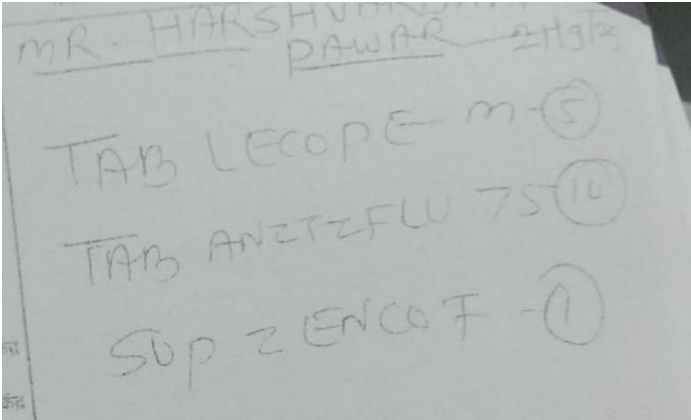 MR. HARSHVARDHAN
PAWAR
TAB LECOPE M-5
TAB ANTIFLU 75-10
SUP ZENCOF -1